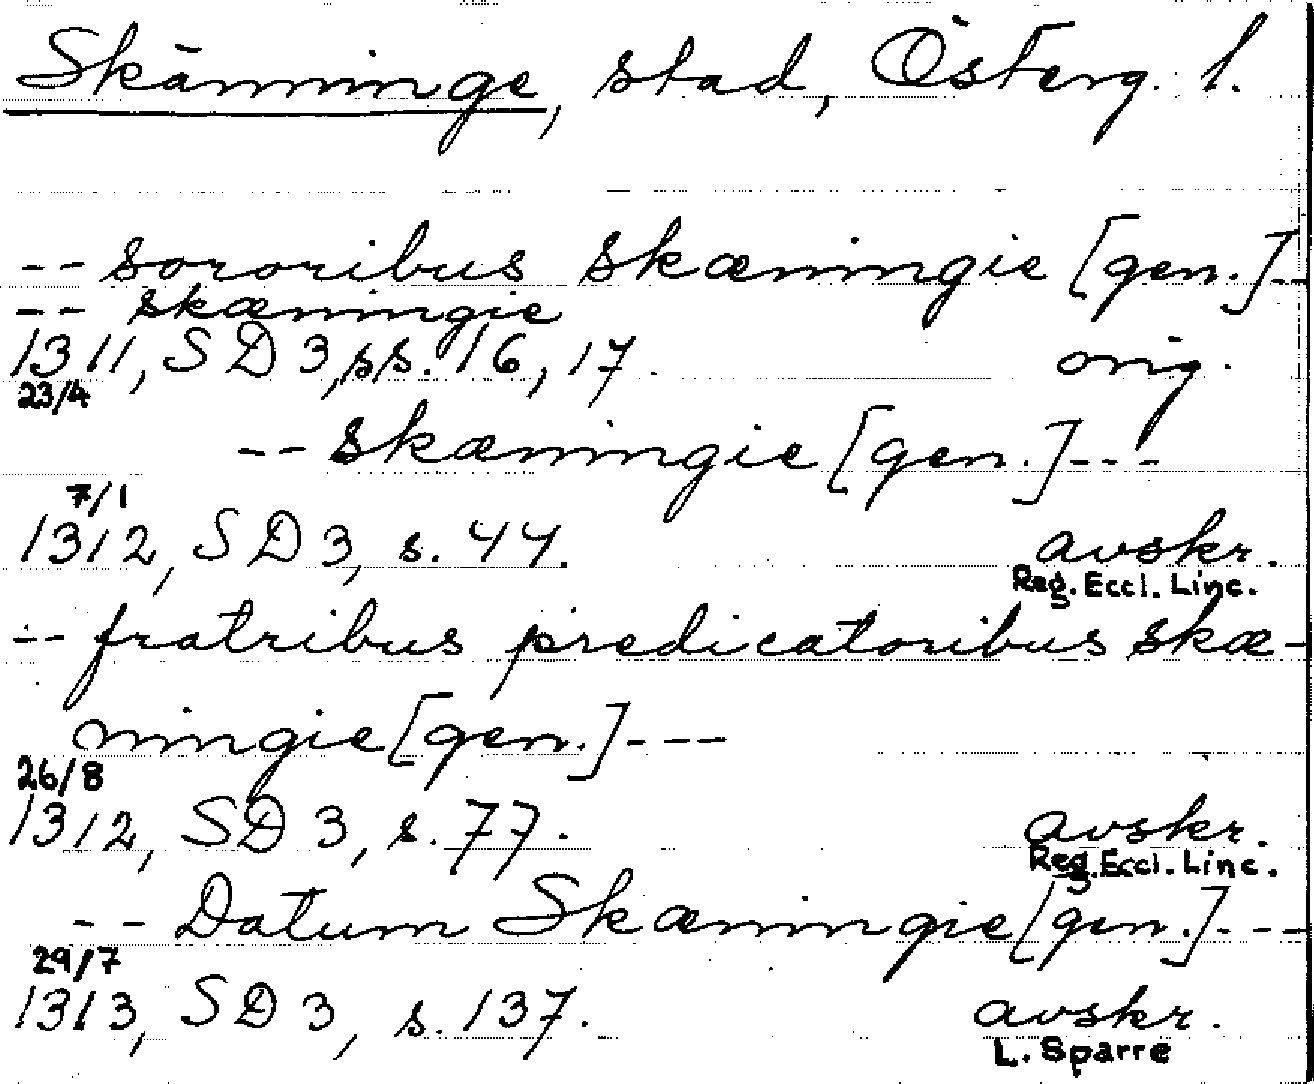 Skänninge, stad, Österg. l.
-- sororibus skæningie [gen.]--
-- skæningie
1311, SD3, ss. 16, 17. orig.
23/4
-- skæningie [gen.]---
7/1
1312, SD3, s. 44. avskr.
Reg. Eccl. Linc.
-- fratribus predicatoribus skæ-
ningie [gen.]---
26/8
1312, SD3, s. 77. avskr.
Reg. Eccl. Linc.
-- Datum Skæningie [gen.]---
29/7
1313, SD3, s. 137. avskr.
L. Sparre